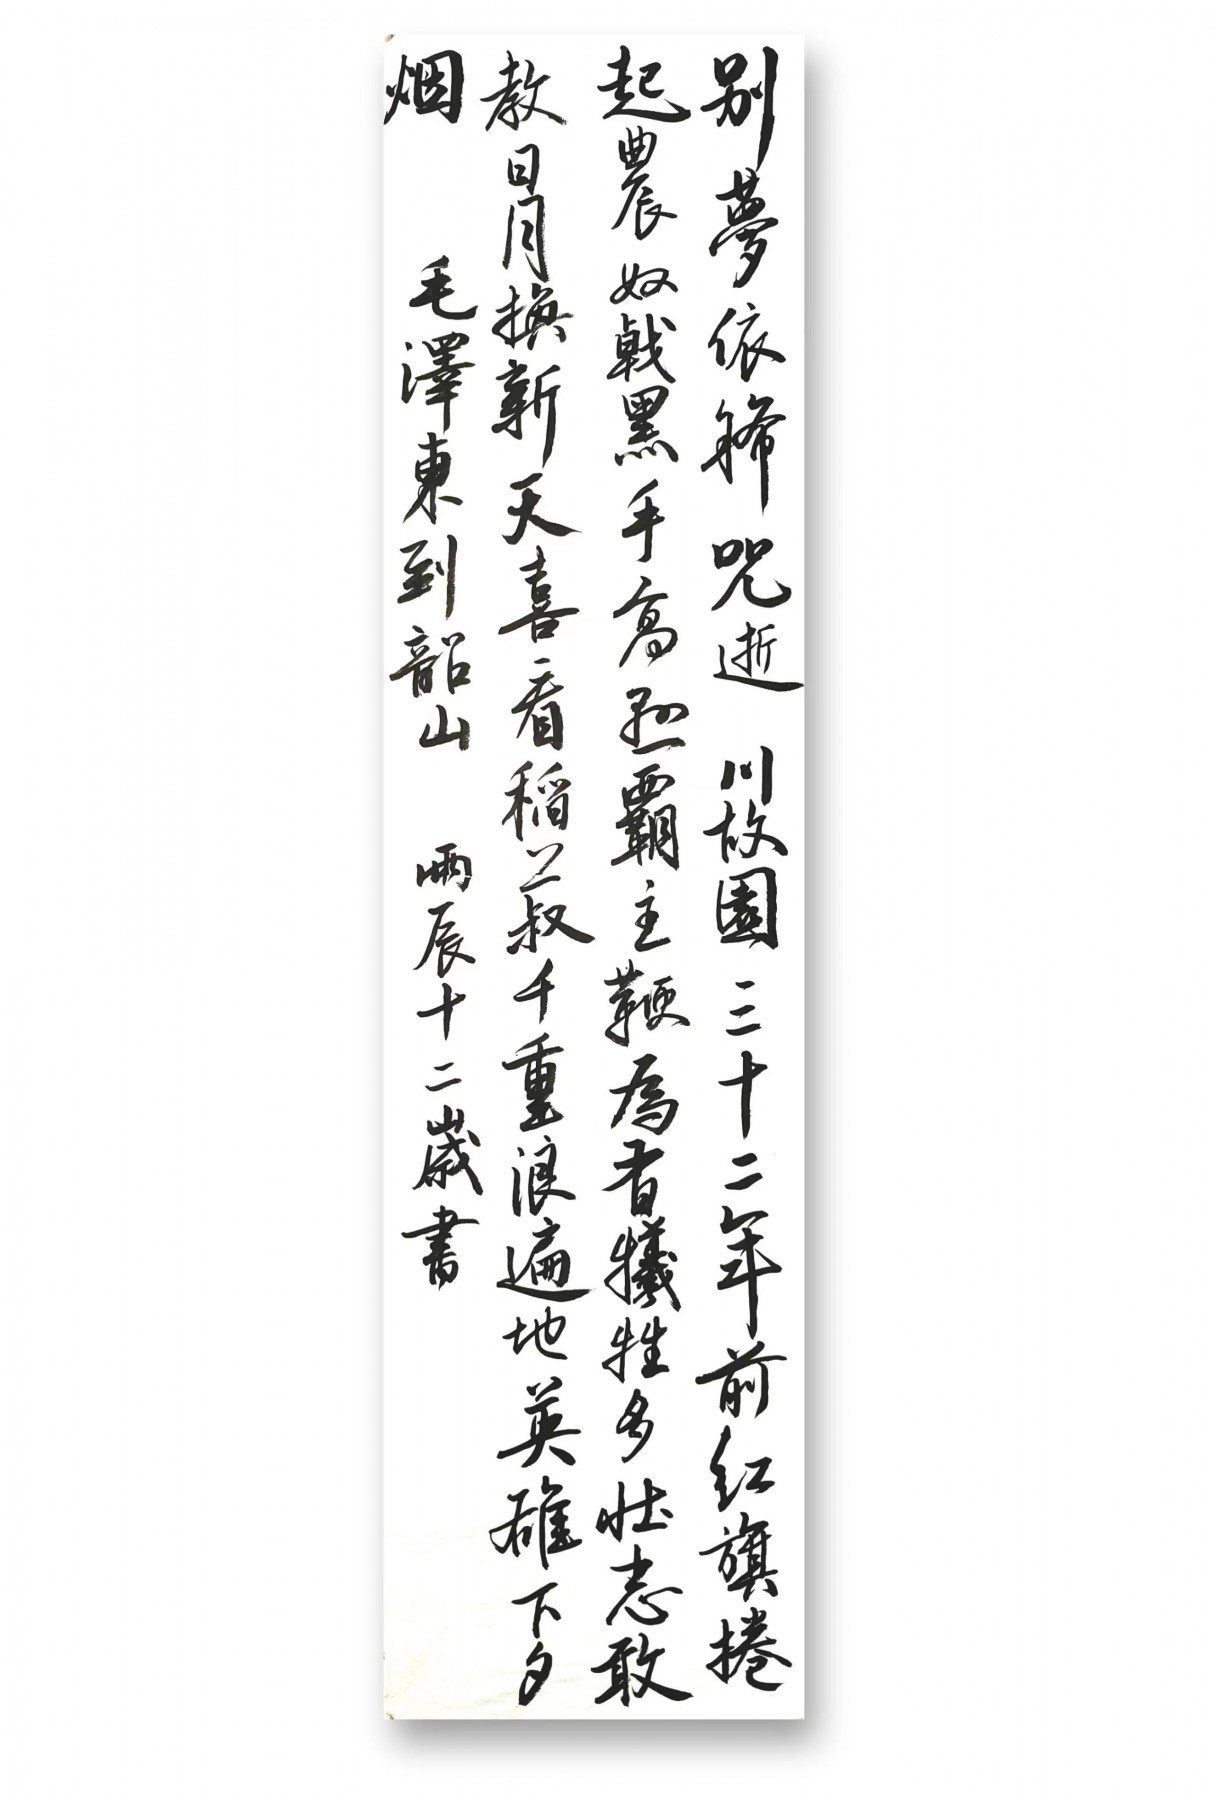 别夢依稀咒逝川故園三十二年前红旗捲
起農奴戟黑手高懸覇主鞭為有犧牲多壮志敢
教日月換新天喜看稻菽千重浪遍地英雄下夕
烟
毛澤東到韶山
丙辰十二歲書